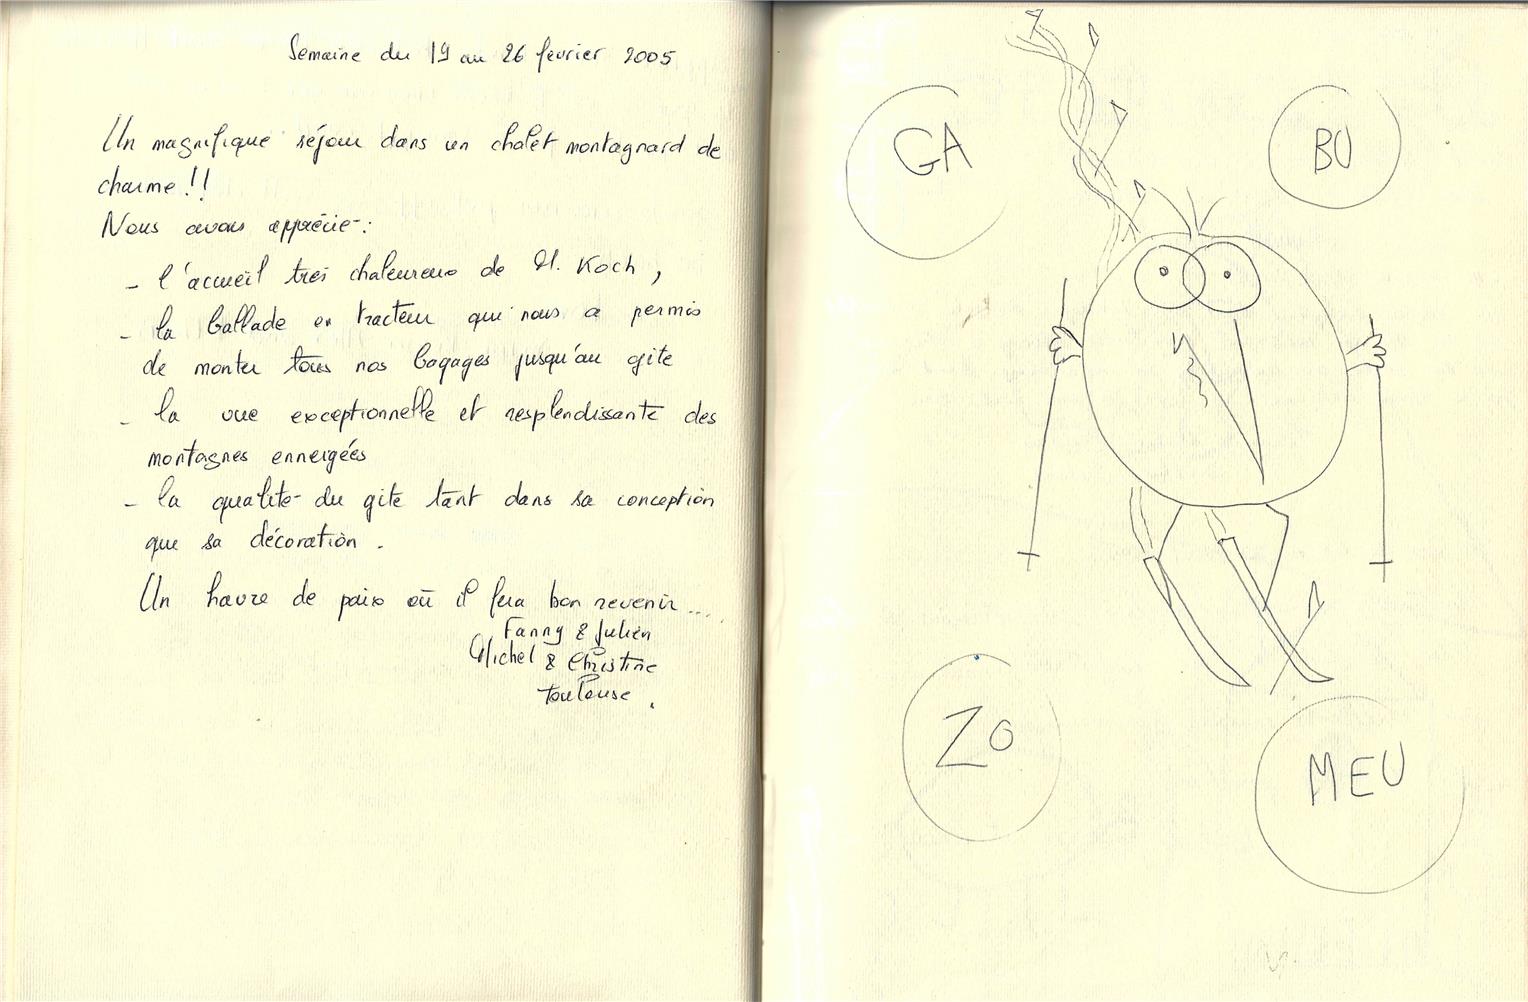 Semaine du 19 au 26 février 2005
Un magnifique séjour dans un chalet montagnard de
charme !!
Nous avons apprécié :
- l'accueil très chaleureux de M. Koch,
- la ballade en tracteur qui nous a permis
de monter tous nos bagages jusqu'au gite
- la vue exceptionnelle et resplendissante des
montagnes enneigées
- la qualité du gite tant dans sa conception
que sa décoration.
Un havre de paix où il fera bon revenir....
Fanny & Julien
Michel & Christine
Toulouse.
GA
BU
ZO
MEU